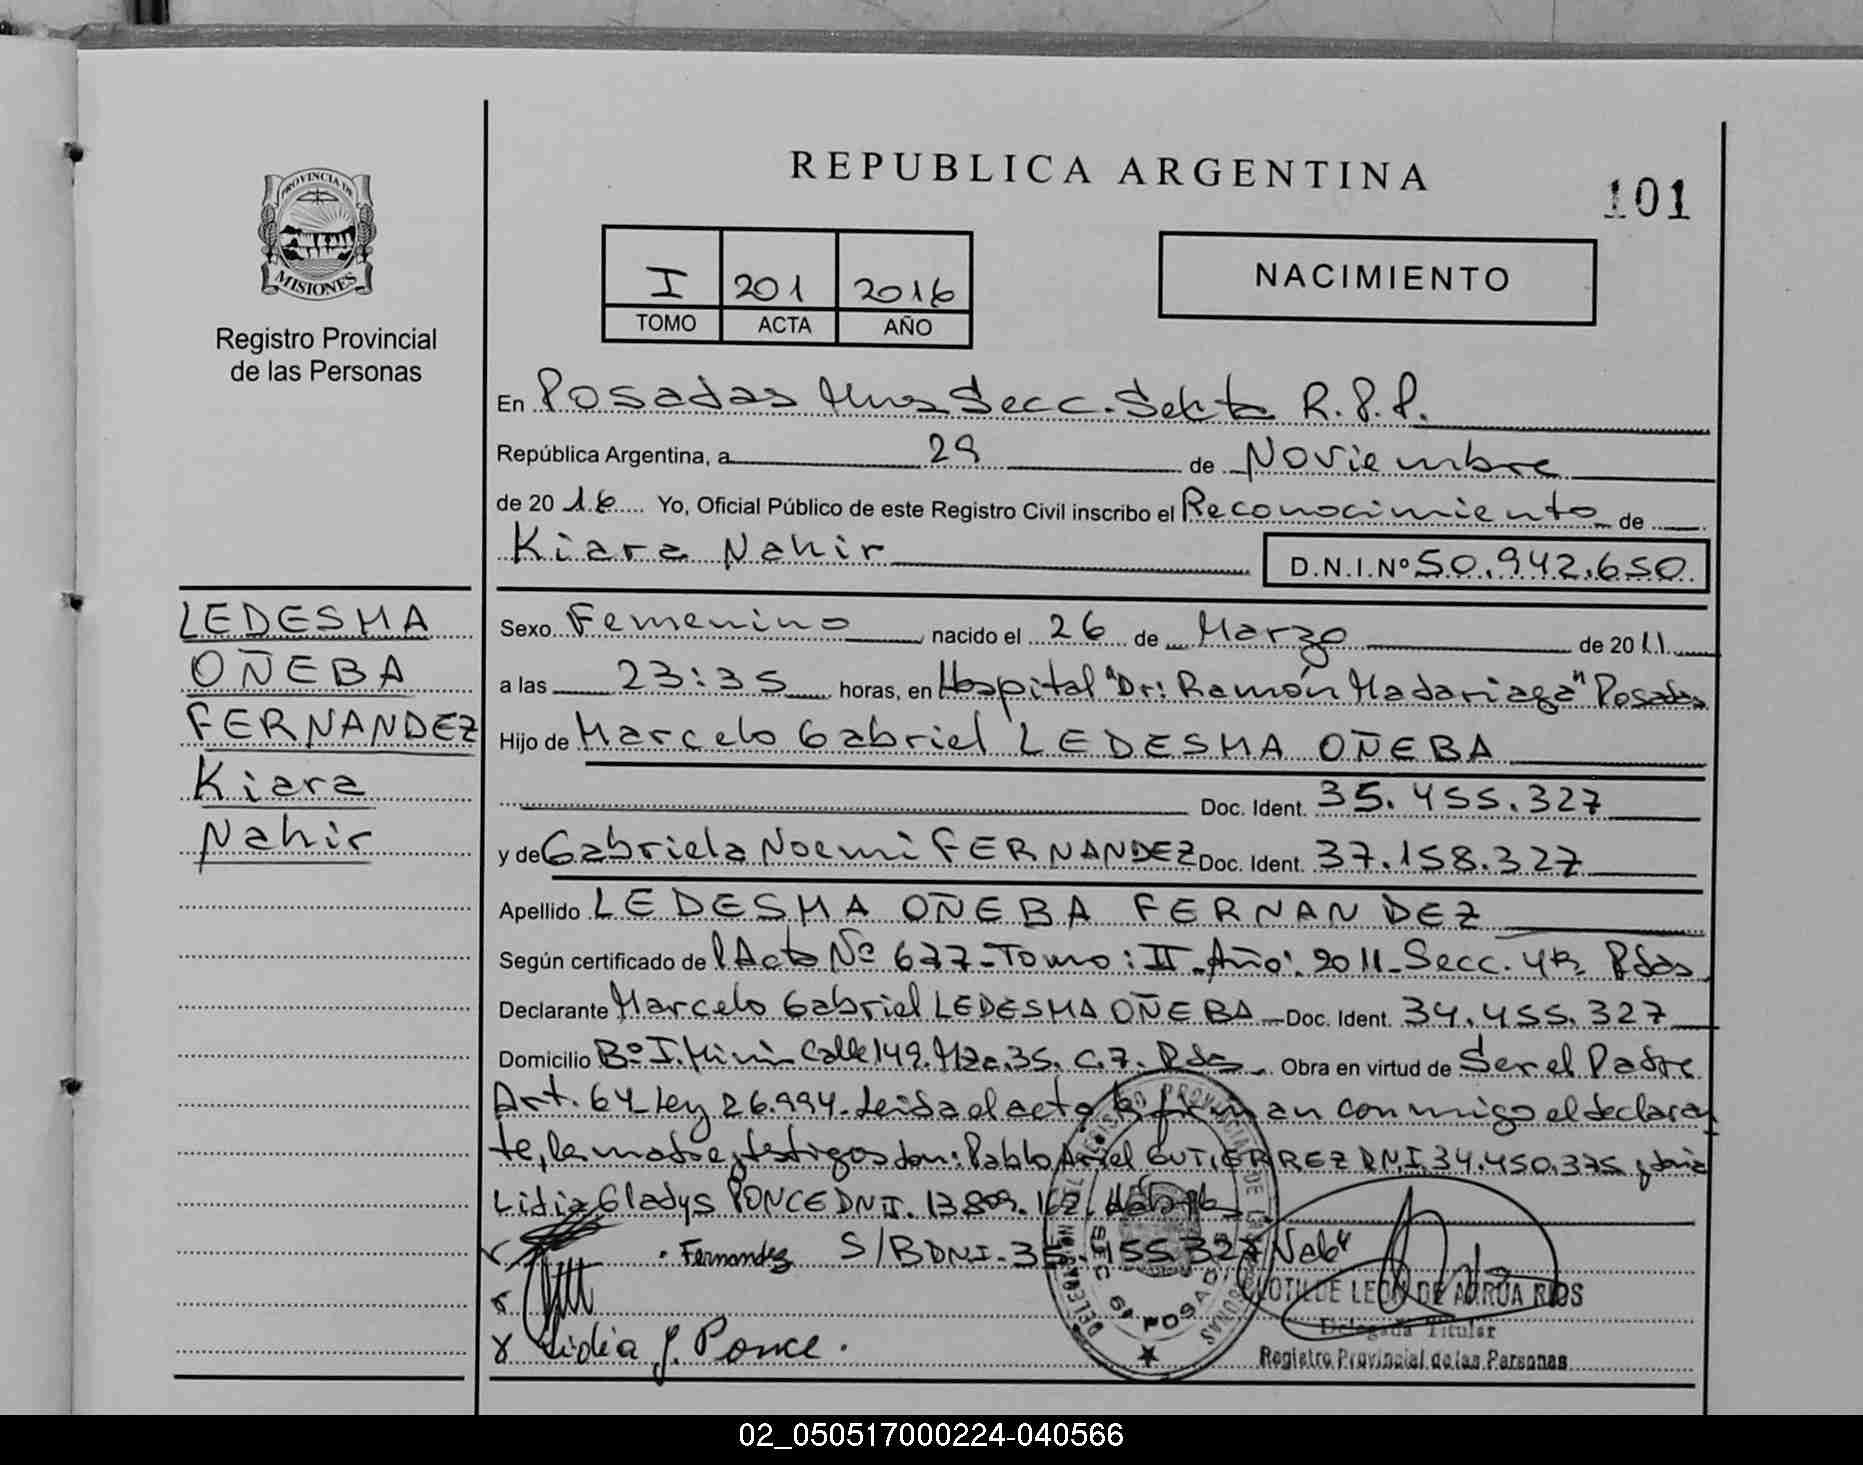 REPUBLICA ARGENTINA
101
PROVINCIA DE
MISIONES
Registro Provincial
de las Personas
I 201 2016
TOMO ACTA AÑO
NACIMIENTO
En Posadas Mnes Secc. Sexta R.P.P.
República Argentina, a 29 de Noviembre
de 2016 Yo, Oficial Público de este Registro Civil inscribo el Reconocimiento de
Kiara Nahir D.N.I.Nº 50.942.650
LEDESMA
OÑEBA
FERNANDEZ
Kiara
Nahir
Sexo Femenino nacido el 26 de Marzo de 2011
a las 23:35 horas, en Hospital "Dr: Ramón Madariaga" Posadas
Hijo de Marcelo Gabriel LEDESMA OÑEBA
Doc. Ident. 35.455.327
y de Gabriela Noemi FERNANDEZ Doc. Ident. 37.158.327
Apellido LEDESMA OÑEBA FERNANDEZ
Según certificado de l Acta Nº 677-Tomo: II-Año: 2011-Secc. 4ta Pdas
Declarante Marcelo Gabriel LEDESMA OÑEBA Doc. Ident. 34.455.327
Domicilio Bº I. Mini- Calle 149. Mza. 35. C.7. Pdas Obra en virtud de Ser el Padre
Art. 64 Ley 26.994. Leida el acta la firman conmigo el declaran
te, la madre y testigos don: Pablo Ariel GUTIERREZ DNI. 34.450.375 y doña
Lidia Gladys PONCE DNI. 13.809.162
Fernandez S/B DNI. 35. 455 327 Vale
Lidia G. Ponce.
CLOTILDE LEON DE ARRUA RIOS
Delegada Titular
Registro Provincial de las Personas
02_050517000224-040566